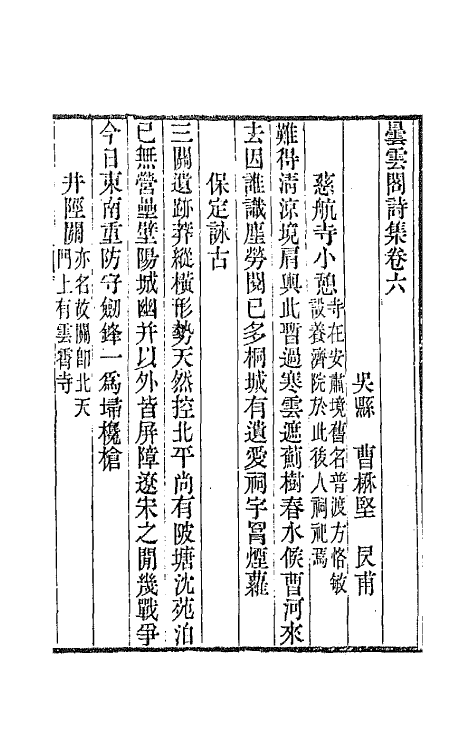 曇雲閣詩集卷六
吳縣　曹楙堅　艮甫
慈航寺小憩寺在安肅境舊名普渡方恪敏
設養濟院於此後人祠祀焉
難得淸涼境肩輿此暫過寒雲遮薊樹春水候曹河來
去因誰識塵勞閱已多桐城有遺愛祠宇罥煙蘿
保定詠古
三關遺跡莽縱橫形勢天然控北平尚有陂塘沈苑泊
已無營壘壁陽城幽并以外皆屏障遼宋之閒幾戰爭
今日東南重防守劒鋒一爲埽欃槍
井陘關亦名故關師北天
門上有雲霄寺